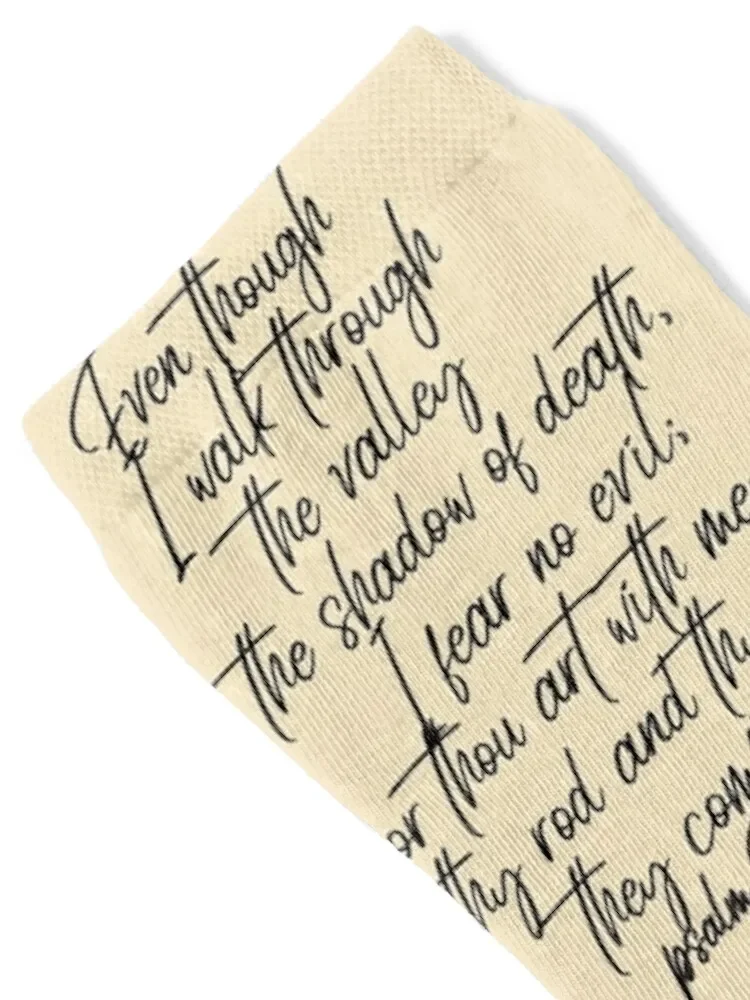 Even though
I walk through
the valley
the shadow of death,
I fear no evil;
or thou art with me
thy rod and th
they com
psalm